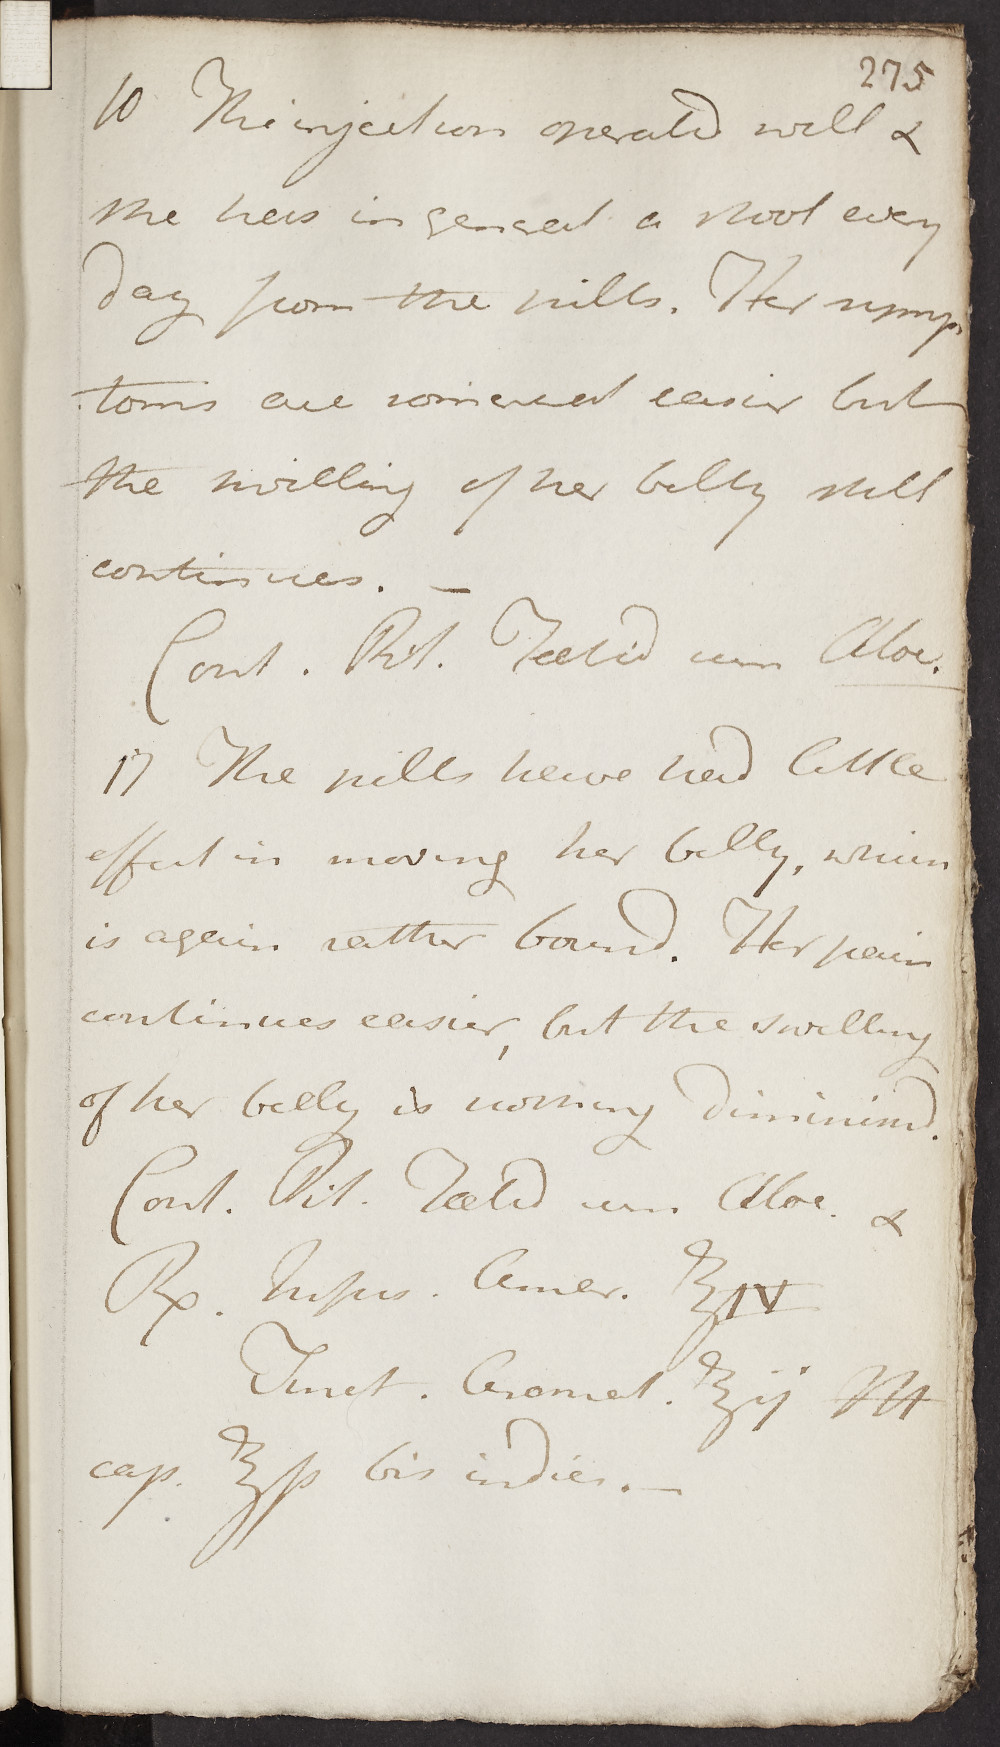 275
10 The injection operated well &
she has in general a stool every
day from the pills. Her symp
toms are somewhat easier but
the swelling of her belly still
continues. –
Cont. Pil. Foetid cum Aloe.
17 The pills have had little
effect in moving her belly, which
is again rather bound. Her pain
continues easier, but the swelling
of her belly is nothing diminish'd.
Cont. Pil. Foetid cum Aloe. &
Rx. Infus. Amar. ℥IV
Tinct. Aromat. ℥ij M
cap. ℥ß bis indies. –